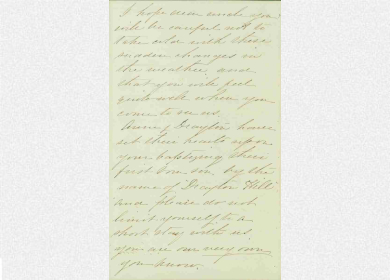 I hope dear uncle you
will be careful not to
take cold with these
sudden changes in
the weather, and
that you will feel
quite well when you
come to see us.
Anne & Drayton have
set their hearts upon
your baptizing their
first one son, by the
name of "Drayton Hill"
and please do not
limit yourself to a
short stay with us,
you are our very own,
you know.